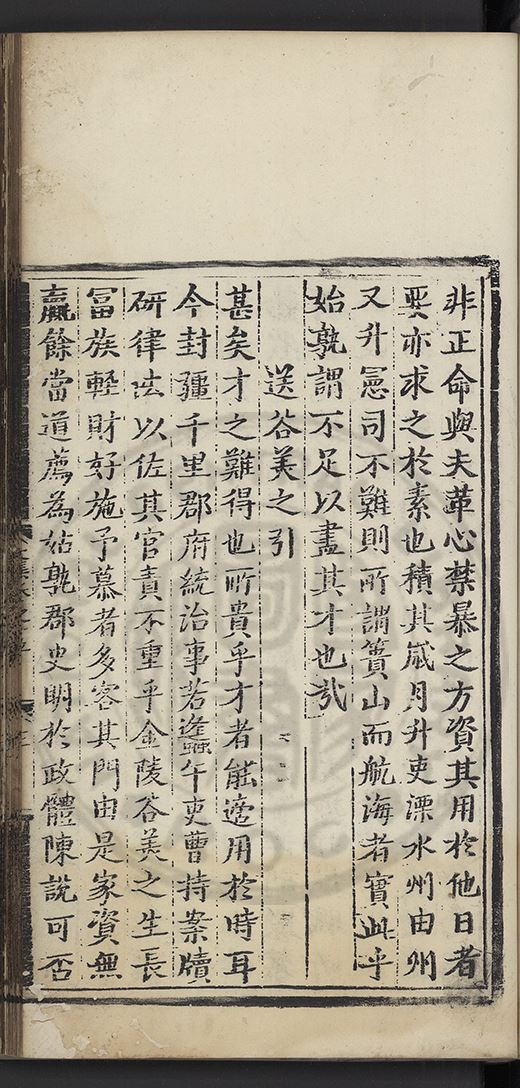 非正命與夫革心禁暴之方資其用於他日者
要亦求之於素也積其歲月升吏溧水州由州
又升憲司不難則所謂簣山而航海者實此乎
始孰謂不足以盡其才也哉
送咨美之引
甚矣才之難得也所貴乎才者能適用於時耳
今封疆千里郡府統治事若蠭午吏曹持案牘
研律法以佐其官責不重乎金陵咨美之生長
富族輕財好施予慕者多客其門由是家資無
贏餘當道薦為姑孰郡史明於政體陳說可否